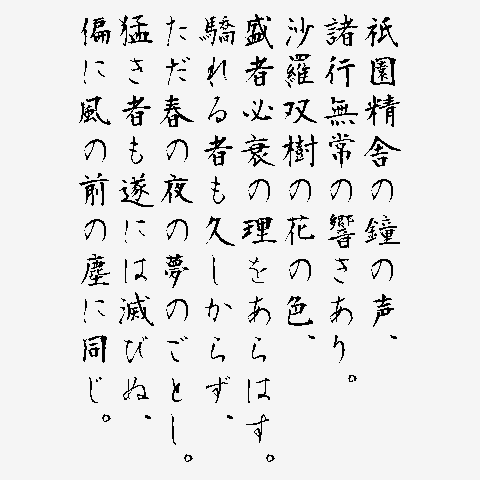 祇園精舎の鐘の声、
諸行無常の響きあり。
沙羅双樹の花の色、
盛者必衰の理をあらはす。
驕れる者も久しからず、
ただ春の夜の夢のごとし。
猛き者も遂には滅びぬ、
偏に風の前の塵に同じ。